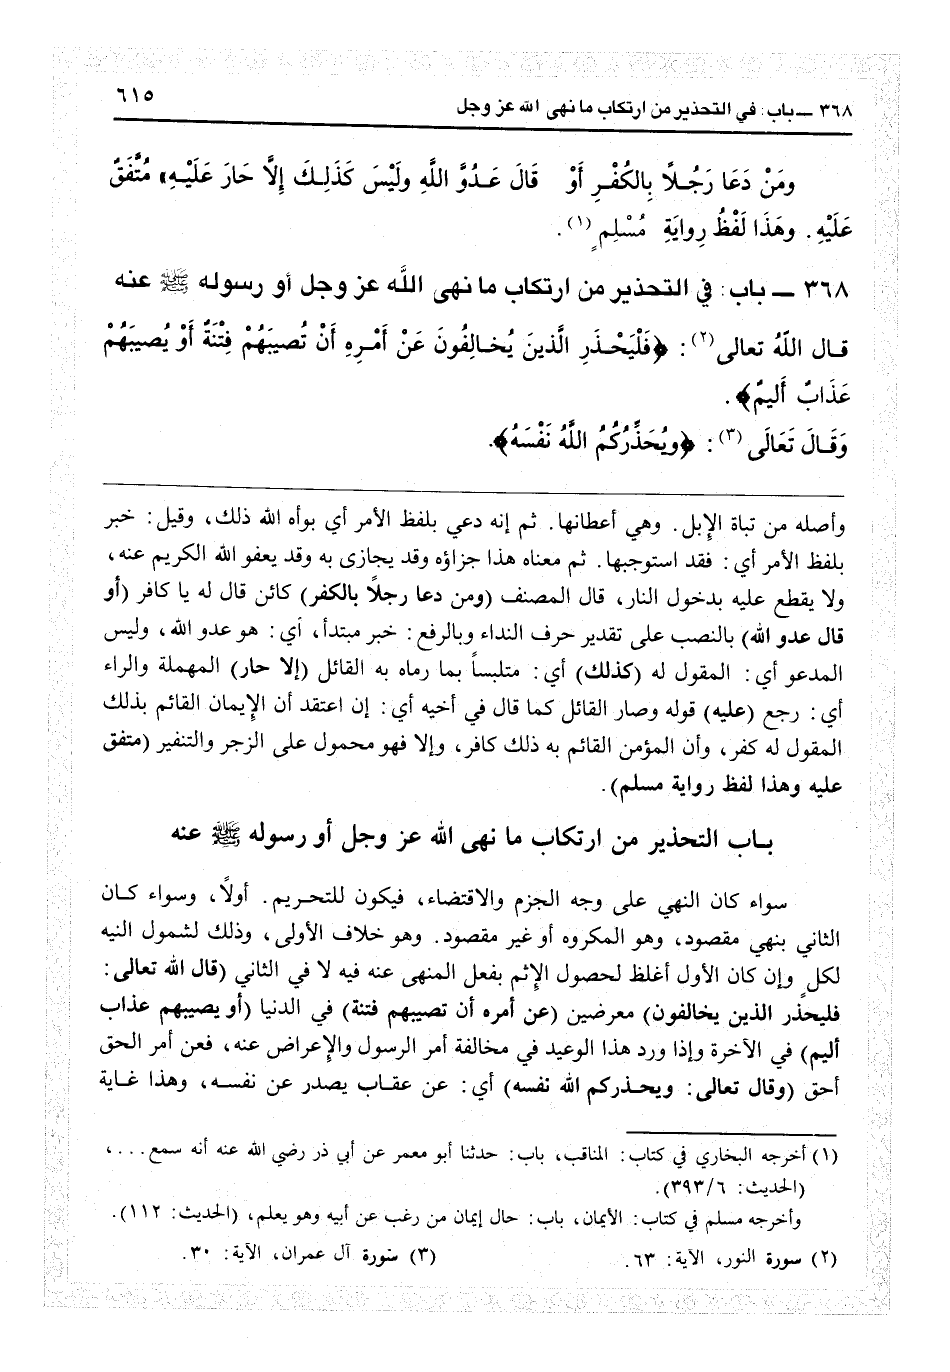 ٣٦٨ ـ باب: في التحذير من ارتكاب ما نهى الله عز وجل ٦١٥
ومَنْ دَعَا رَجُـلاً بِالكُفْـرِ أَوْ قَالَ عَـدُوَّ اللَّهِ ولَيْسَ كَذَلِـكَ إلَّا حَارَ عَلَيْـهِ» مُتَّفَقٌ
عَلَيْهِ. وهَذَا لَفْظُ رِوايَةِ مُسْلِمٍ (١).
٣٦٨ ـ باب: في التحذير من ارتكاب ما نهى اللَّه عز وجل أو رسوله ﷺ عنه
قـال اللَّهُ تعالى (٢): ﴿فَلْيَحْـذَرِ الَّذينَ يُخـالِفُونَ عَنْ أَمْـرِهِ أَنْ تُصيبَهُمْ فِتْنَةٌ أَوْ يُصيبَهُمْ
عَذَابٌ أَليمٌ﴾.
وَقَـالَ تَعَالَى (٣): ﴿ويُحَذِّرُكُمُ اللَّهُ نَفْسَهُ﴾.
وأصله من تباة الإبل. وهي أعطانها. ثم إنه دعي بلفظ الأمر أي بوأه الله ذلك، وقيل: خبر
بلفظ الأمر أي: فقد استوجبها. ثم معناه هذا جزاؤه وقد يجازى به وقد يعفو الله الكريم عنه،
ولا يقطع عليه بدخول النار، قال المصنف (ومن دعا رجلاً بالكفر) كائن قال له يا كافر (أو
قال عدو الله) بالنصب على تقدير حرف النداء وبالرفع: خبر مبتدأ، أي: هو عدو الله، وليس
المدعو أي: المقول له (كذلك) أي: متلبساً بما رماه به القائل (إلا حار) المهملة والراء
أي: رجع (عليه) قوله وصار القائل كما قال في أخيه أي: إن اعتقد أن الإيمان القائم بذلك
المقول له كفر، وأن المؤمن القائم به ذلك كافر، وإلا فهو محمول على الزجر والتنفير (متفق
عليه وهذا لفظ رواية مسلم).
بـاب التحذير من ارتكاب ما نهى الله عز وجل أو رسوله ﷺ عنه
سواء كان النهي على وجه الجزم والاقتضاء، فيكون للتحـريم. أولاً، وسواء كـان
الثاني بنهي مقصود، وهو المكروه أو غير مقصود. وهو خلاف الأولى، وذلك لشمول النيه
لكلٍ وإن كان الأول أغلظ لحصول الإثم بفعل المنهى عنه فيه لا في الثاني (قال الله تعالى:
فليحذر الذين يخالفون) معرضين (عن أمره أن تصيبهم فتنة) في الدنيا (أو يصيبهم عذاب
أليم) في الآخرة وإذا ورد هذا الوعيد في مخالفة أمر الرسول والإعراض عنه، فعن أمر الحق
أحق (وقال تعالى: ويحذركم الله نفسه) أي: عن عقاب يصدر عن نفسـه، وهذا غـاية
(١) أخرجه البخاري في كتاب: المناقب، باب: حدثنا أبو معمر عن أبي ذر رضي الله عنه أنه سمع...،
(الحديث: ٣٩٣/٦).
وأخرجه مسلم في كتاب: الأيمان، باب: حال إيمان من رغب عن أبيه وهو يعلم، (الحديث: ١١٢).
(٢) سورة النور، الآية: ٦٣. (٣) سورة آل عمران، الآية: ٣٠.